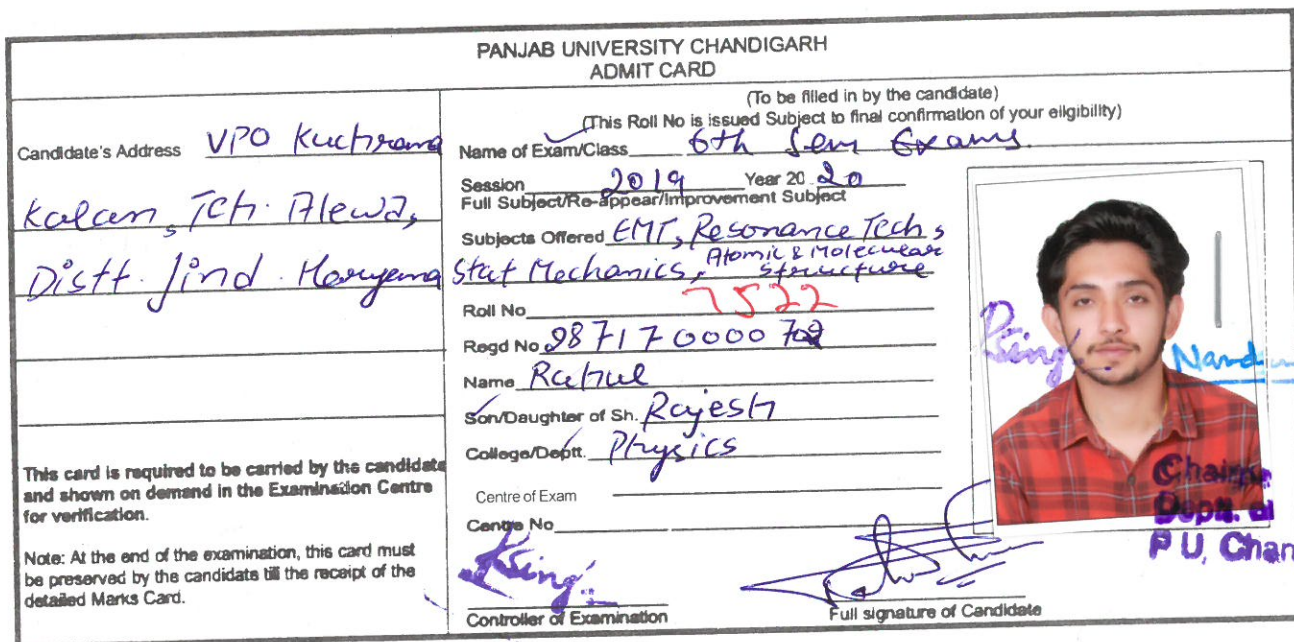 PANJAB UNIVERSITY CHANDIGARH
ADMIT CARD
Candidate's Address VPO Kuchrana
Kalan, Teh. Alewa,
Distt. Jind. Haryana
This card is required to be carried by the candidate
and shown on demand in the Examination Centre
for verification.
Note: At the end of the examination, this card must
be preserved by the candidate till the receipt of the
detailed Marks Card.
(To be filled in by the candidate)
(This Roll No is issued Subject to final confirmation of your eligibility)
Name of Exam/Class 6th Sem Exams.
Session 2019 Year 20 20
Full Subject/Re-appear/Improvement Subject
Subjects Offered EMT, Resonance Tech,
Stat Mechanics, Atomic & Molecular
Structure
Roll No 7522
Regd No
Name Rahul
Son/Daughter of Sh. Rajesh
College/Deptt. Physics
Centre of Exam
Centre No
Controller of Examination
Full signature of Candidate
Deptt. of
P U, Chan